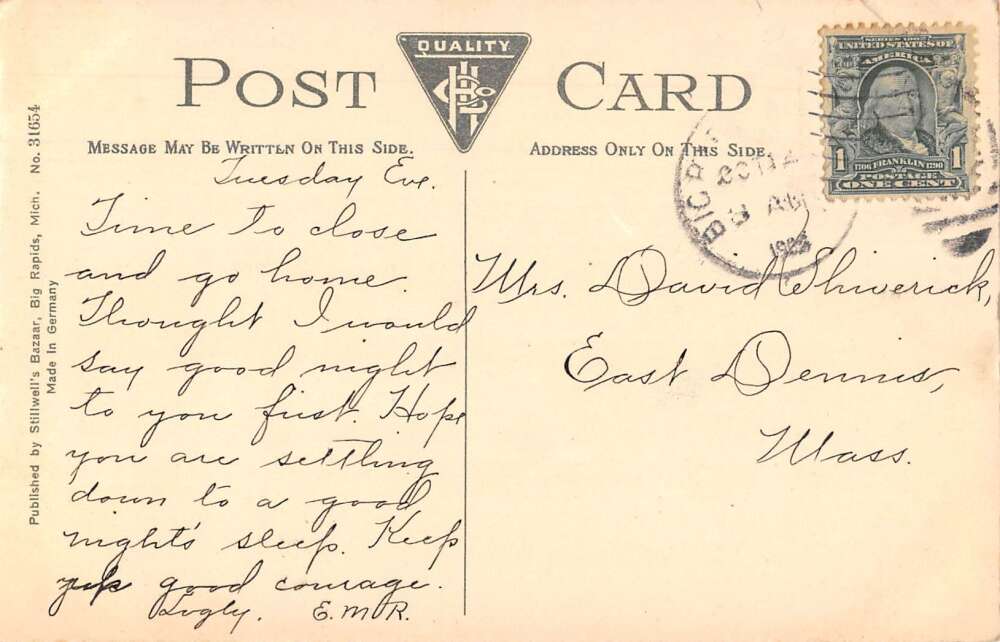 QUALITY
POST CARD
MESSAGE MAY BE WRITTEN ON THIS SIDE.
ADDRESS ONLY ON THIS SIDE.
SERIES 1902
UNITED STATES OF
AMERICA
1 1706 FRANKLIN 1790 1
POSTAGE
ONE CENT
BIG
OCT 14
3 AM
Tuesday Eve.
Time to close
and go home.
Thought I would
say good night
to you first. Hope
you are settling
down to a good
night's sleep. Keep
up good courage.
Lvgly. E.M.R.
Mrs. David Shiverick,
East Dennis,
Mass.
Published by Stillwell's Bazaar, Big Rapids, Mich. No. 31654
Made In Germany